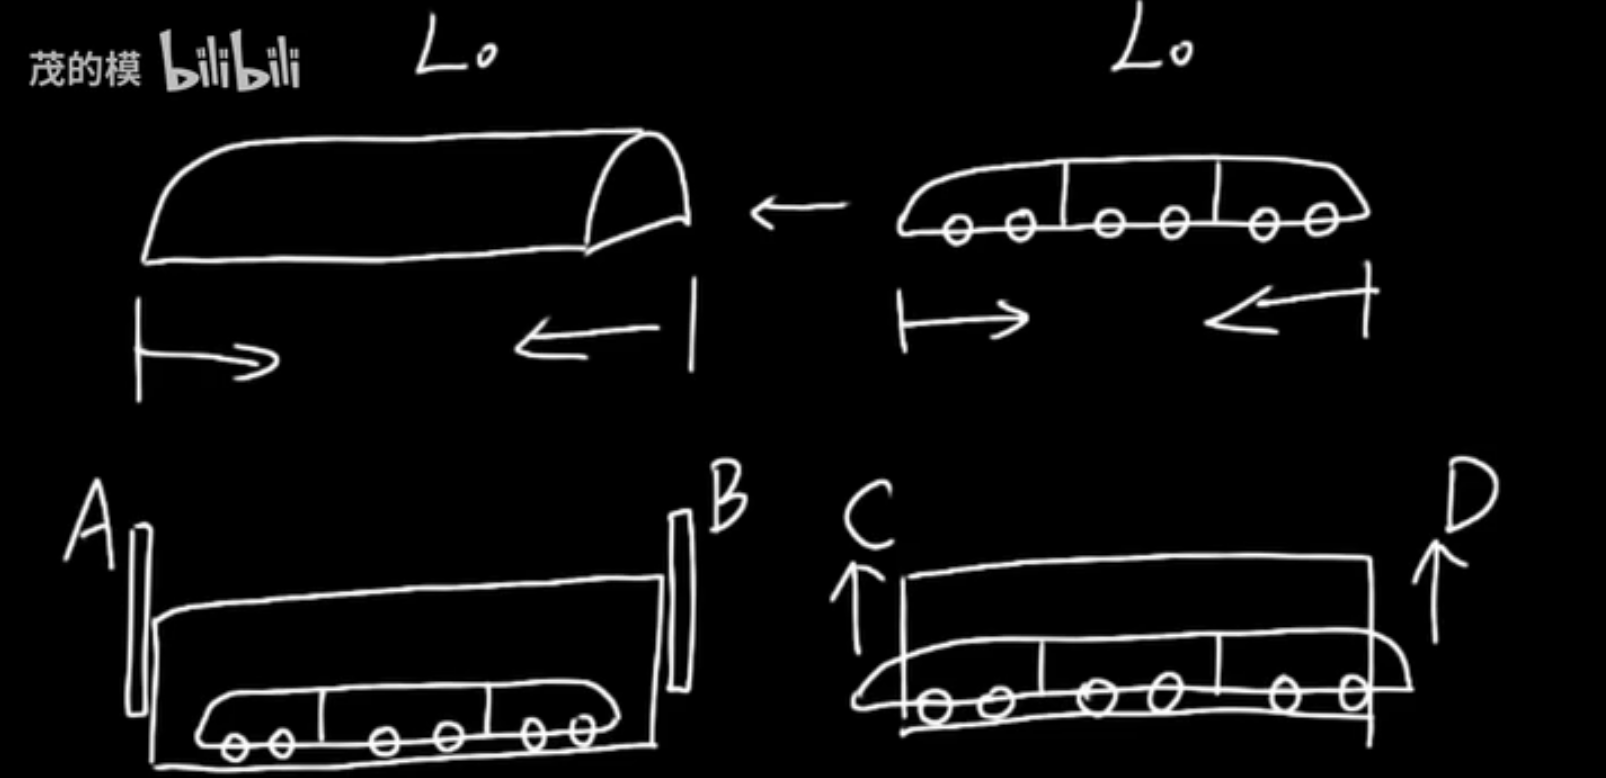 茂的模 bilibili
L₀ L₀
A B C D